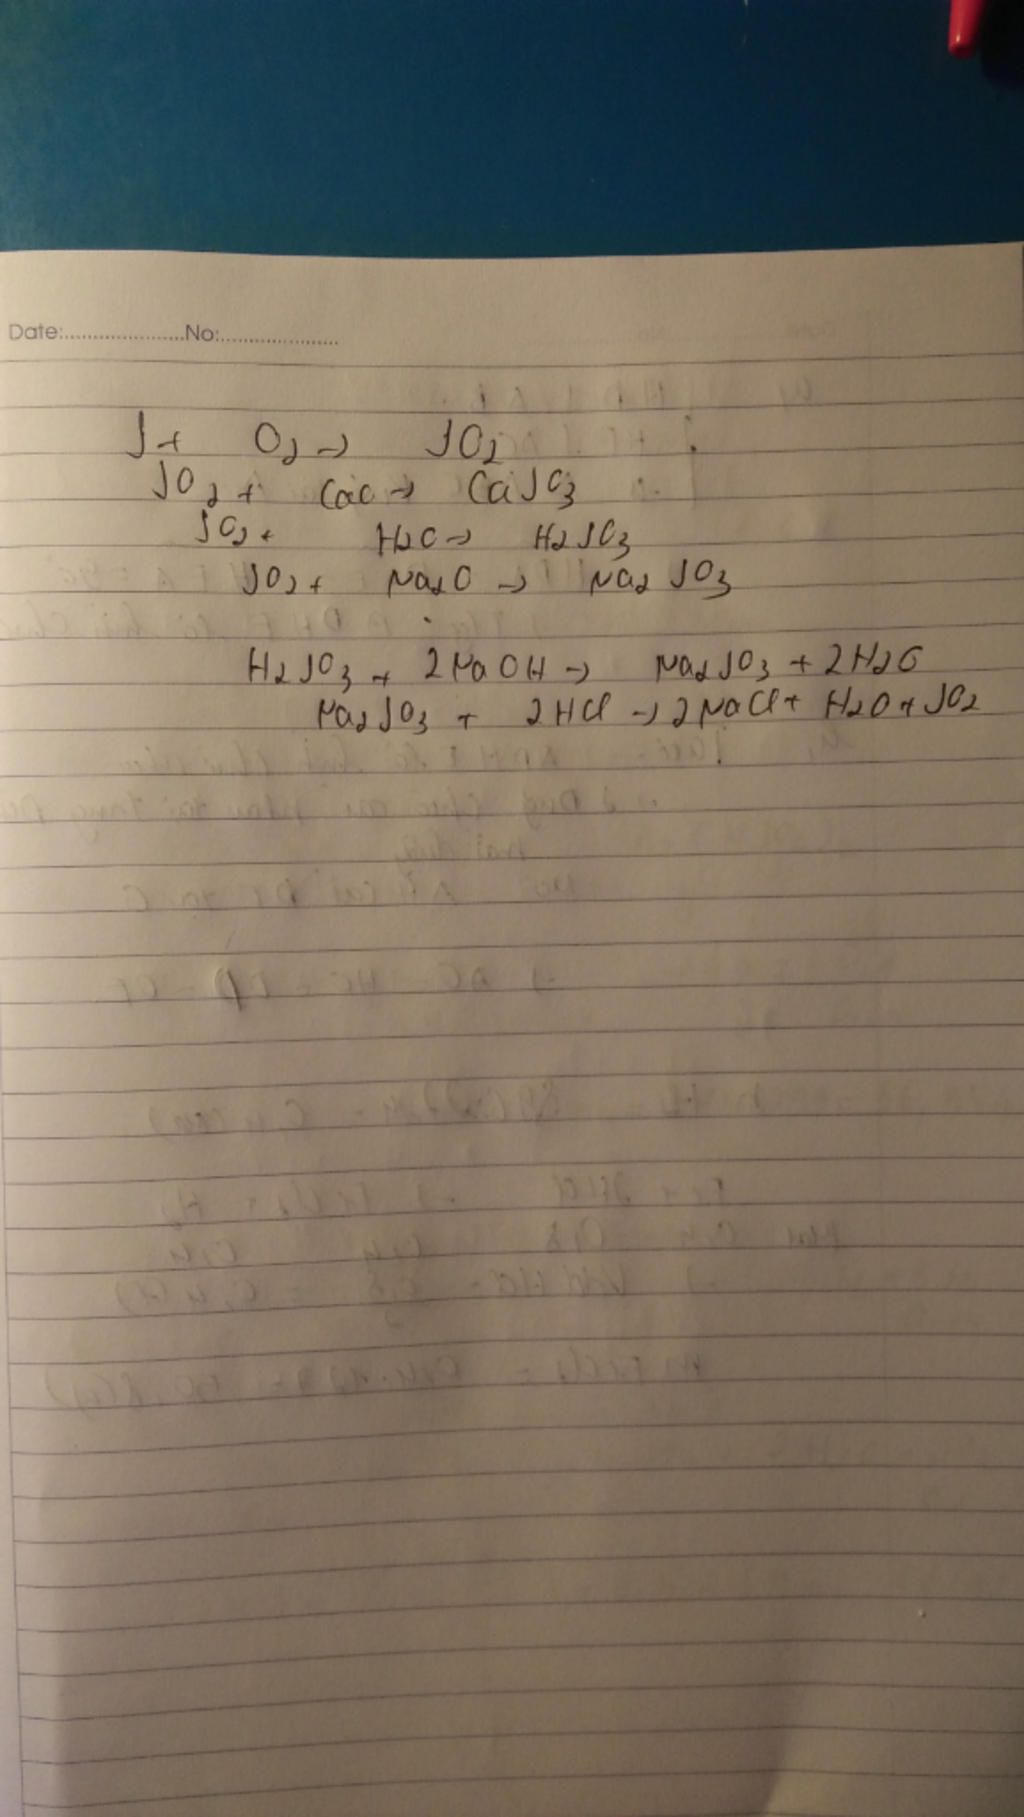 Date:.....................No:.....................
S + O2 → SO2
SO2 + CaO → CaSO3
SO2 + H2O → H2SO3
SO2 + Na2O → Na2SO3
H2SO3 + 2NaOH → Na2SO3 + 2H2O
Na2SO3 + 2HCl → 2NaCl + H2O + SO2